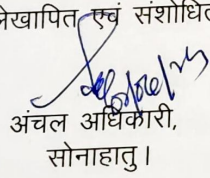 लेखापित एवं संशोधित
अंचल अधिकारी,
सोनाहातु।